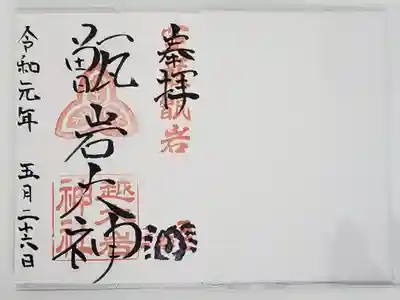 奉拝
甑岩
甑岩大神
越木岩
神社
令和元年 五月二十六日